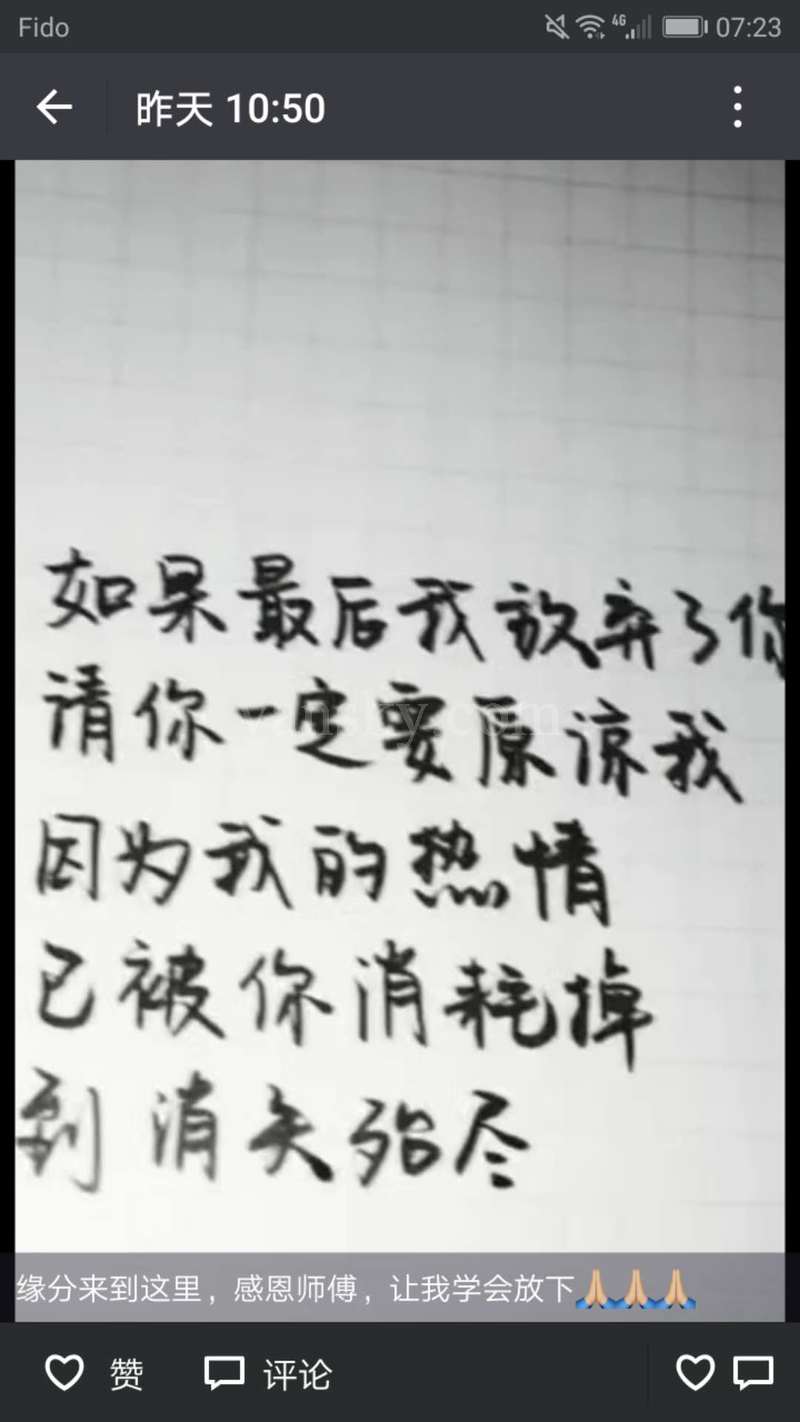 Fido
4G
07:23
昨天 10:50
如果最后我放弃了你
请你一定要原谅我
vansky.com
因为我的热情
已被你消耗掉
到消失殆尽
缘分来到这里，感恩师傅，让我学会放下🙏🙏🙏
赞
评论